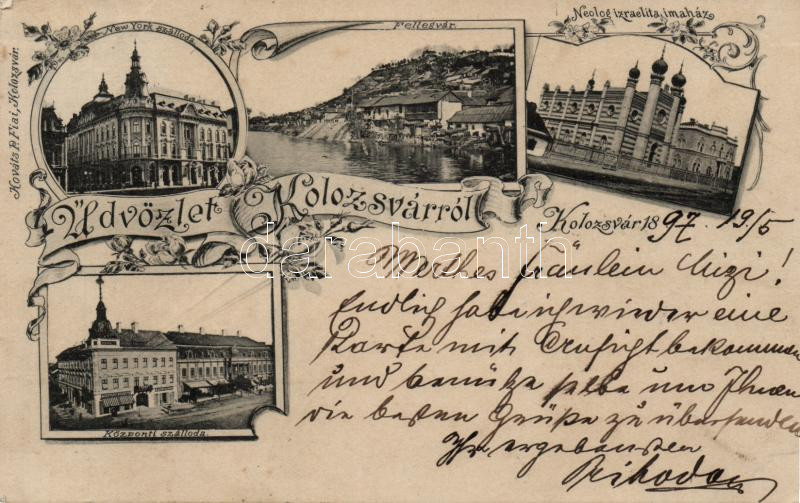 New York szálloda
Fellegvár.
Neolog izraelita imaház
Kováts P. Fiai, Kolozsvár.
Üdvözlet Kolozsvárról
Kolozsvár 1897. 19/5
darabanth.com
Werthes Fräulein Mizi!
Endlich habe ich wieder eine
Karte mit Ansicht bekommen
und benütze selbe um Ihnen
die besten Grüße zu übersenden
Ihr ergebenster
Központi szálloda